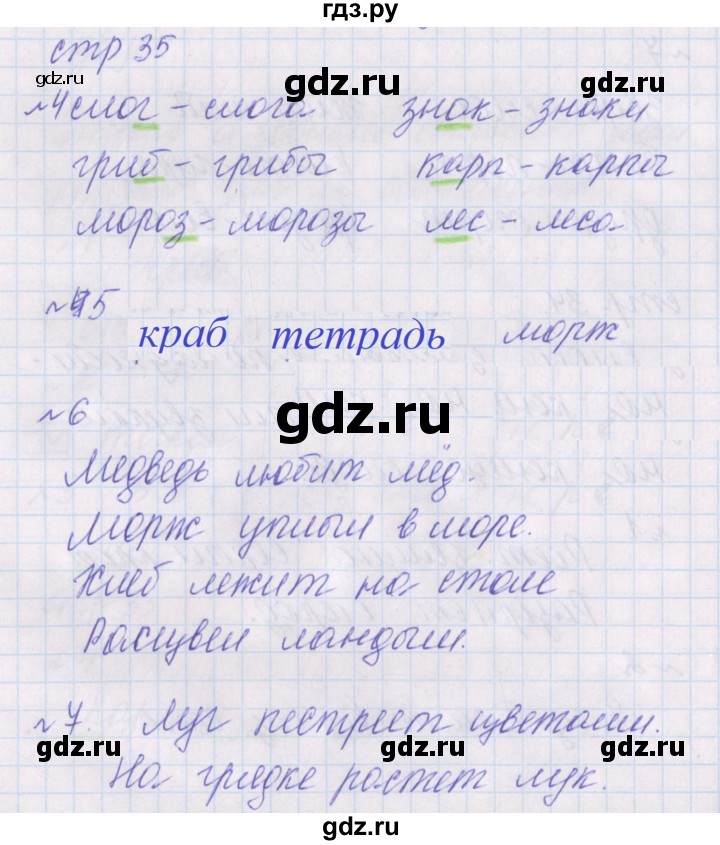 гдз.ру
стр 35
№4 слог – слога знак – знаки
гриб – грибы карп – карпы
мороз – морозы лес – леса
№5
краб тетрадь морж
gdz.ru
№6
Медведь любит мёд.
Морж уплыл в море.
Хлеб лежит на столе
Расцвел ландыш.
gdz.ru gdz.ru
№7. Луг пестреет цветами.
gdz.ru gdz.ru
На грядке растет лук.
gdz.ru